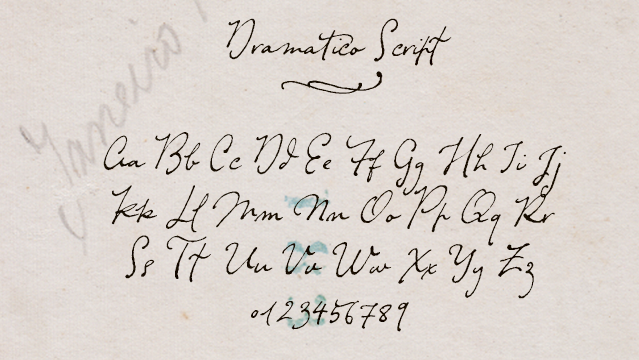 Dramatico Script
Janeiro
Aa Bb Cc Dd Ee Ff Gg Hh Ii Jj
Kk Ll Mm Nn Oo Pp Qq Rr
Ss Tt Uu Vv Ww Xx Yy Zz
0123456789